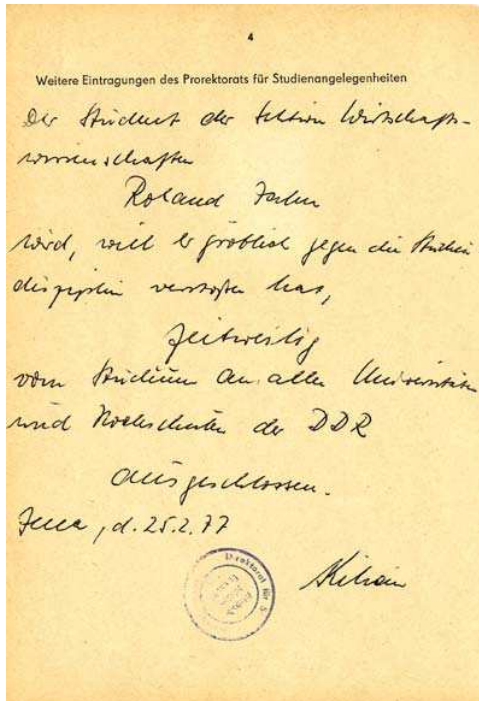 4
Weitere Eintragungen des Prorektorats für Studienangelegenheiten
Der Student der Sektion Wirtschafts-
wissenschaften
Roland Jahn
wird, weil er gröblich gegen die Studien
disziplin verstoßen hat,
zeitweilig
vom Studium an allen Universitäten
und Hochschulen der DDR
ausgeschlossen.
Jena, d. 25.2.77
Direktorat für S
Kilian